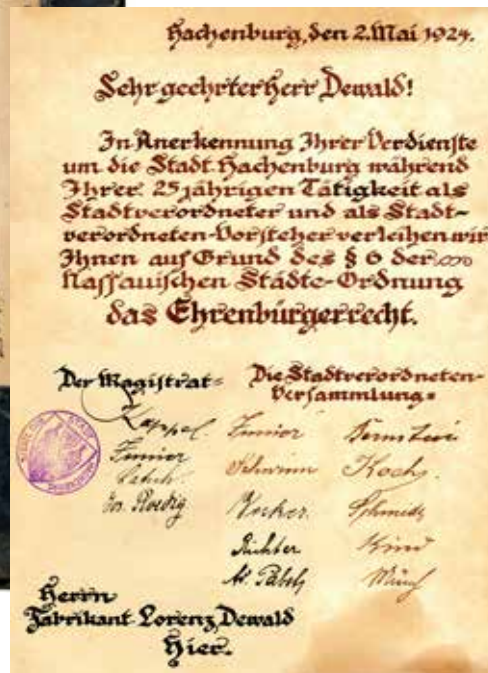 Hachenburg, den 2. Mai 1924.
Sehr geehrter Herr Dewald!
In Anerkennung Ihrer Verdienste
um die Stadt Hachenburg während
Ihrer 25 jährigen Tätigkeit als
Stadtverordneter und als Stadt-
verordneten-Vorsteher verleihen wir
Ihnen auf Grund des § 6 der
Nassauischen Städte-Ordnung
das Ehrenbürgerrecht.
Der Magistrat= Die Stadtverordneten-
Versammlung=
Kappel
Jos. Roedig
Schwinn Koch
Schmidt
Richter
Münch
Herrn
Fabrikant Lorenz Dewald
Hier.